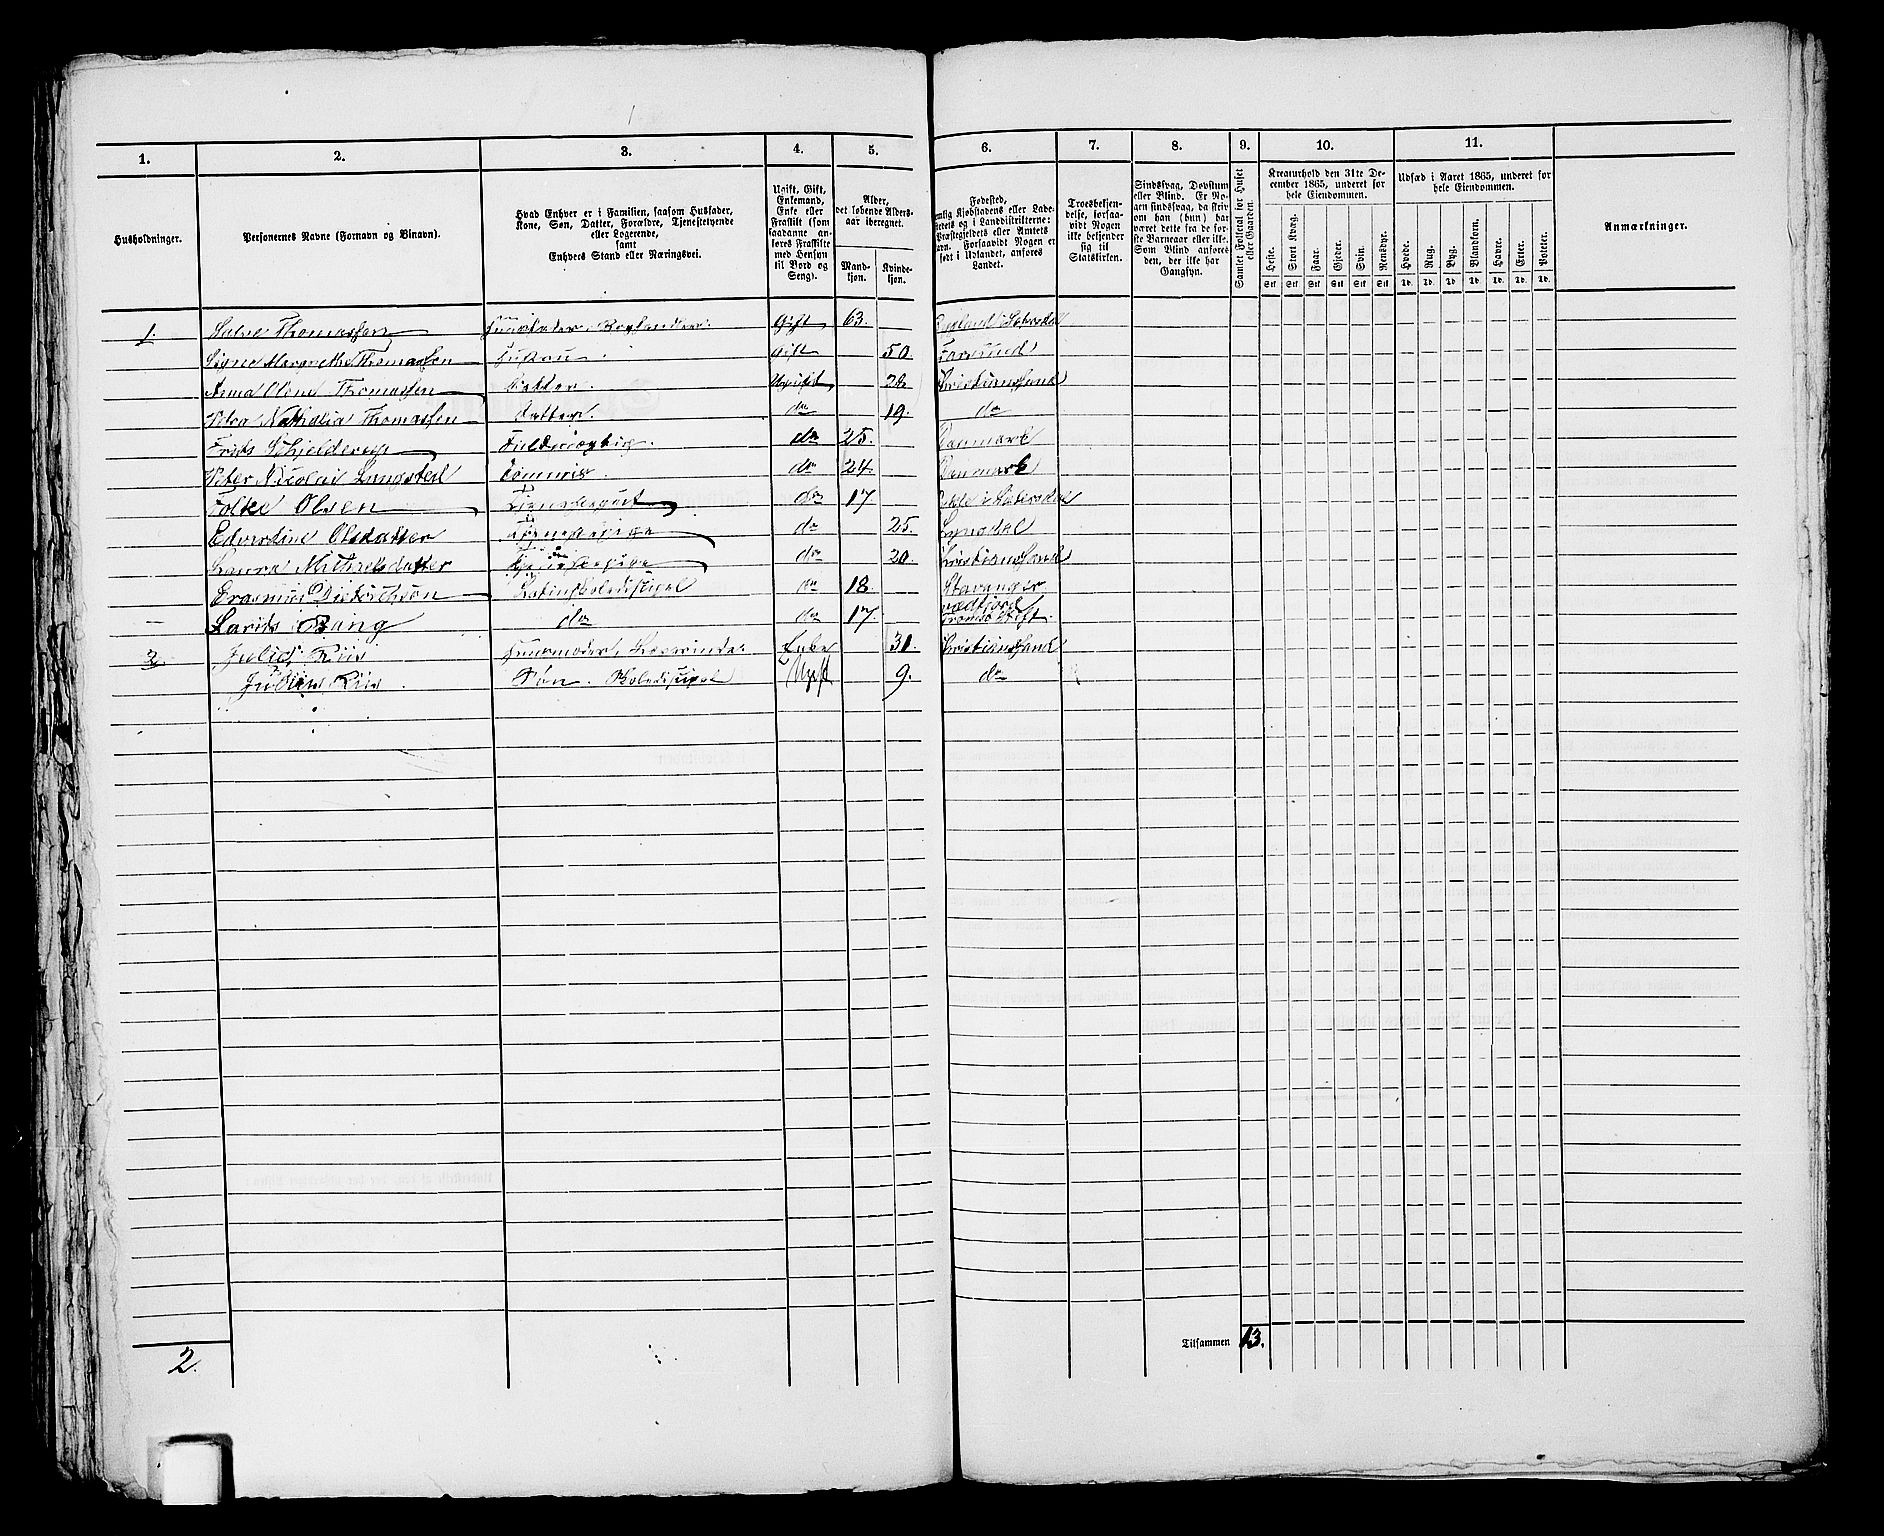 1. 2. 3. 4. 5. 6. 7. 8. 9. 10. 11.
Husholdninger.
Personernes Navne (Fornavn og Binavn).
Hvad Enhver er i Familien, saasom Husfader,
Kone, Søn, Datter, Forældre, Tjenestetyende
eller Logerende,
samt
Enhvers Stand eller Næringsvei.
Ugift, Gift,
Enkemand,
Enke eller
Fraskilt (som
saadanne an-
føres Fraskilte
med Hensyn
til Bord og
Seng).
Alder,
det løbende Alders-
aar iberegnet.
Mand-
kjøn.
Kvinde-
kjøn.
Fødested,
nemlig Kjøbstadens eller Lade-
stedets og i Landdistrikterne:
Præstegjeldets eller Amtets
Navn. Forsaavidt Nogen er
født i Udlandet, anføres
Landet.
Troesbekjen-
delse, forsaa-
vidt Nogen
ikke bekjender
sig til
Statskirken.
Sindssvag, Døvstum
eller Blind. Er No-
gen sindssvag, da skriv
om han (hun) har
været dette fra de for-
ste Barneaar eller ikke.
Som Blind anføres
den, der ikke har
Gangsyn.
Samlet Folketal for Huset
eller Gaarden.
Kreaturhold den 31te De-
cember 1865, underet for
hele Eiendommen.
Heste. Stort Kvæg. Faar. Gjeder. Svin. Rensdyr.
Stk Stk Stk Stk Stk Stk
Udsæd i Aaret 1865, underet for
hele Eiendommen.
Hvede. Rug. Byg. Blandkorn. Havre. Erter. Poteter.
Td. Td. Td. Td. Td. Td. Td.
Anmærkninger.
1. Salve Thomassen Huusfader. Gift 63.
Signe Margrethe Thomassen Hustru. Gift 50. Farsund
Anna Olene Thomassen Datter. Ugift Christiansand
Nathalia Thomassen Datter. do 19. do
Frits do 25. Danmark
Peter Nicolai Langsted do 24. Danmark
Folke Olsen do 17.
Edvardine Olsdatter Tjenestepige do 25. Lyngdal
Laura Michelsdatter Tjenestepige do 20. Christiansand
Erasmus Dietrichson Latinskoledisipel do 18. Stavanger
Bang do do 17.
2. Riis Huusmoder, Enke 31. Christiansand
Riis Søn. Skoledisipel Ugift 9. do
2.
Tilsammen 13.